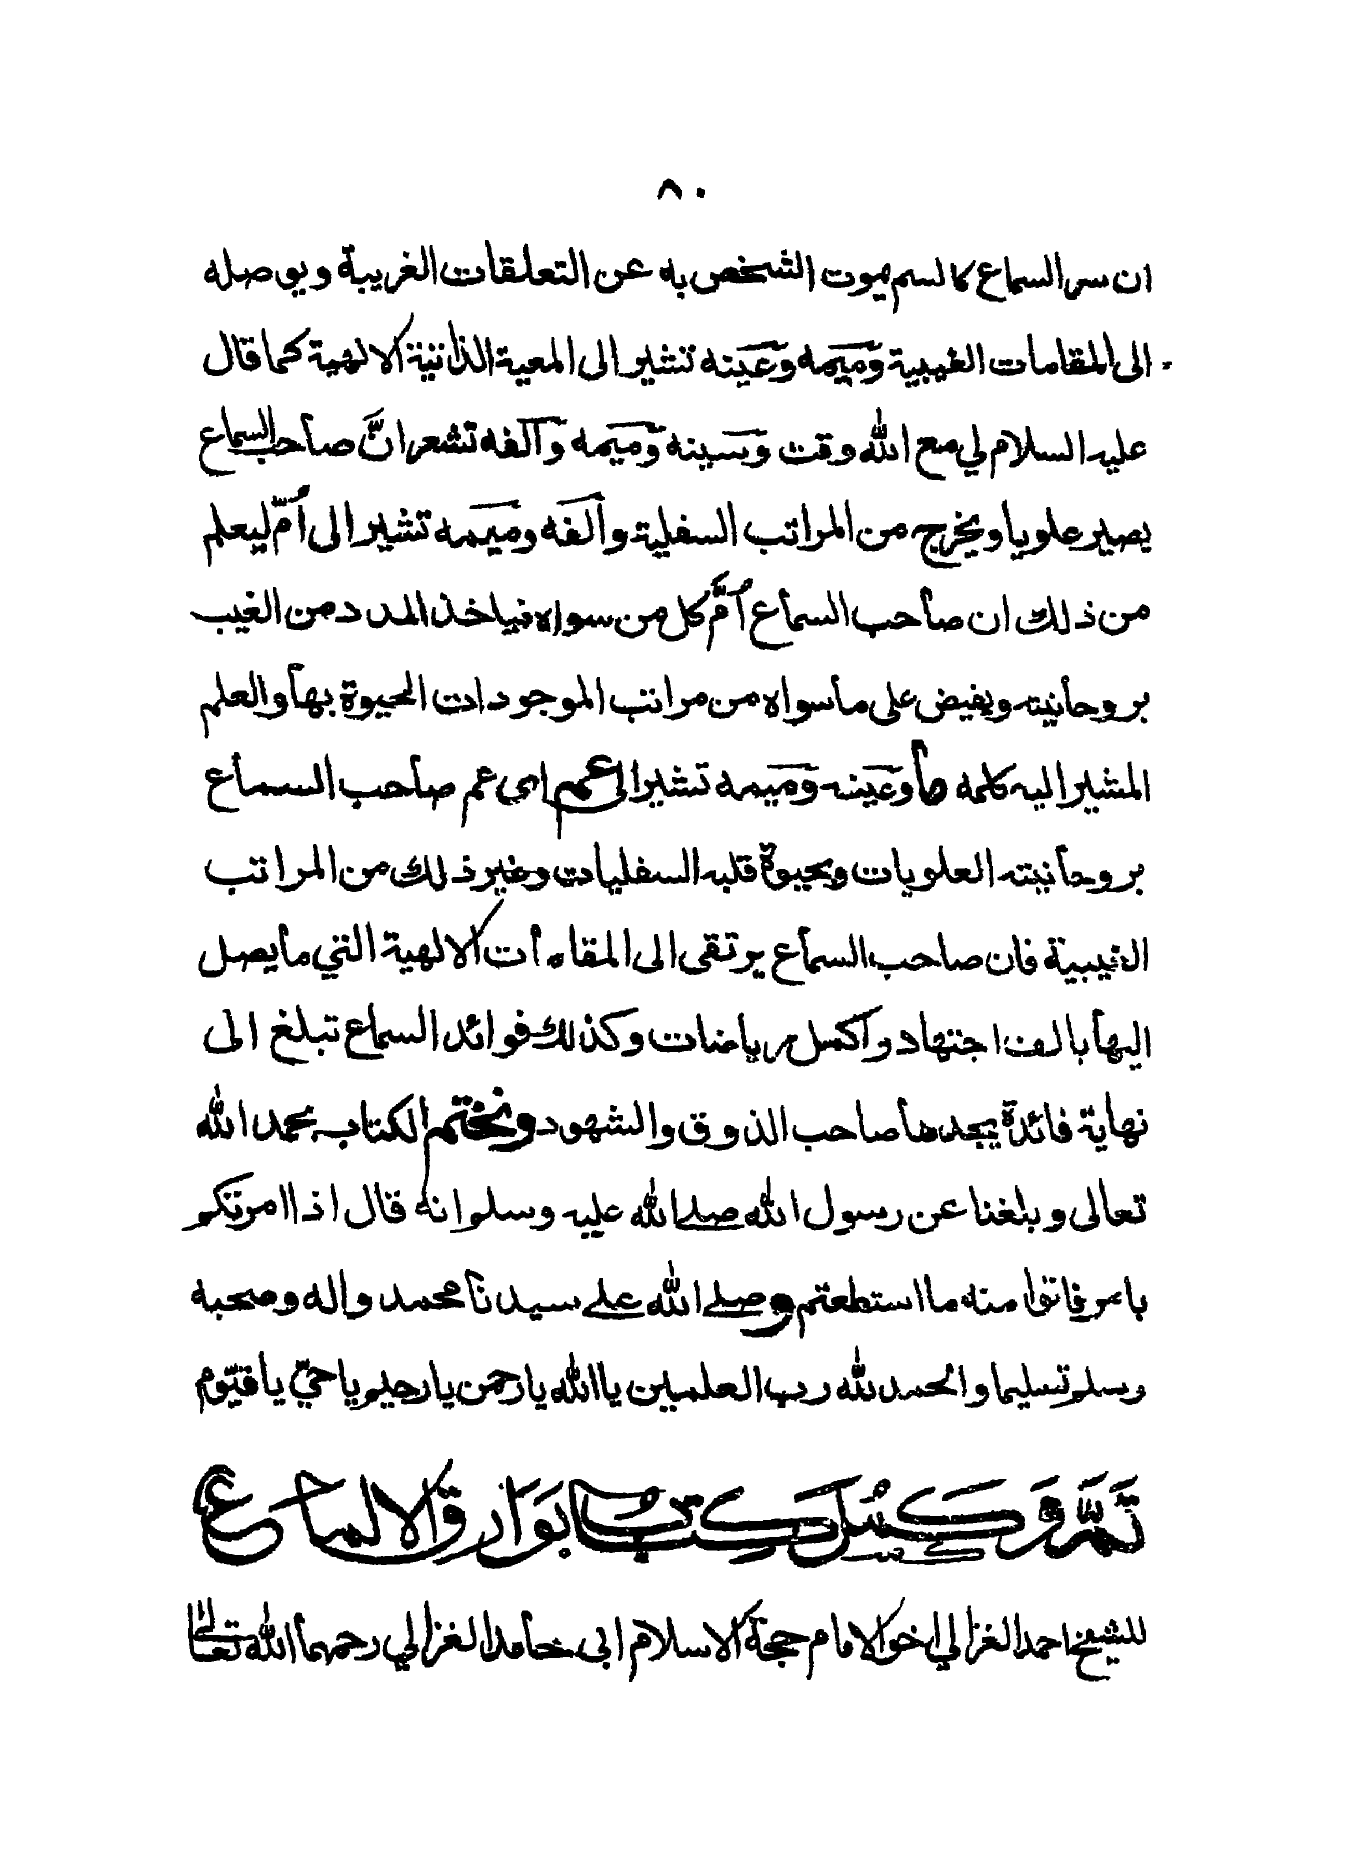 ٨٠
ان سر السماع كالسم يموت الشخص به عن التعلقات الغريبة ويوصله
الى المقامات الغيبية وميمه وعينه تشير الى المعية الذاتية الالهية كما قال
عليه السلام لي مع الله وقت وسينه وميمه وآلفه تشعر انَّ صاحب السماع
يصير علويا ويخرج من المراتب السفلية وآلفه وميمه تشير الى اُمّ ليعلم
من ذلك ان صاحب السماع اُمّ كل من سواه فياخذ المدد من الغيب
بروحانيته ويفيض على ماسواه من مراتب الموجودات الحيوة بها والعلم
المشير اليه كلمه ما وعينه وميمه تشير الى عم اى عم صاحب السماع
بروحانيته العلويات وبحيوة قلبه السفليات وغير ذلك من المراتب
الغيبية فان صاحب السماع يرتقى الى المقامات الالهية التي مايصل
اليها بالف اجتهاد واكمل رياضات وكذلك فوائد السماع تبلغ الى
نهاية فائدة يجدها صاحب الذوق والشهود ونختم الكتاب بحمد الله
تعالى وبلغنا عن رسول الله صلى الله عليه وسلم انه قال اذا امرتكم
بامر فاتوا منه ما استطعتم وصلى الله على سيدنا محمد واله وصحبه
وسلم تسليما والحمد لله رب العلمين يا الله يا رحمن يا رحيم يا حيّ يا قيّوم
كتب بوارق الالماع
للشيخ احمد الغزالي اخو الامام حجة الاسلام ابي حامد الغزالي رحمهما الله تعالى